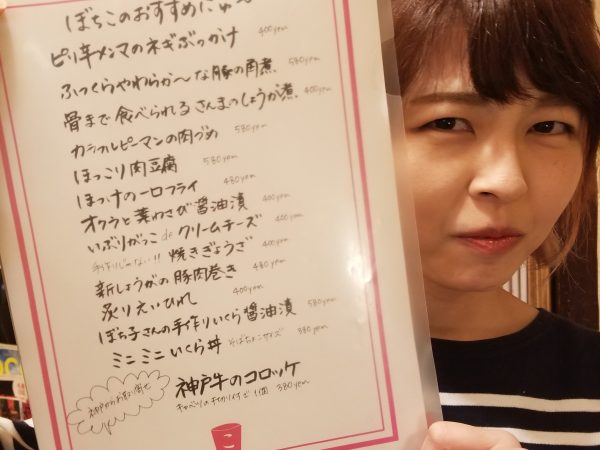 ぼちこのおすすめにゅ〜
ピリ辛メンマのネギぶっかけ 400yen
ふっくらやわらか〜な豚の角煮 580yen
骨まで食べられるさんまのしょうが煮 400yen
カラフルピーマンの肉づめ 580yen
ほっこり肉豆腐 580yen
ほっけの一口フライ 480yen
オクラと葉わさび醤油漬 400yen
いぶりがっこ de クリームチーズ 400yen
手作りじゃない!! 焼きぎょうざ 400yen
新しょうがの豚肉巻き 480yen
炙りえいひれ 400yen
ぼち子さんの手作りいくら醤油漬 580yen
ミニミニいくら丼 そばちょこサイズ 380yen
神戸からお取り寄せ
神戸牛のコロッケ
キャベツの千切り付き 1個 380yen
こ